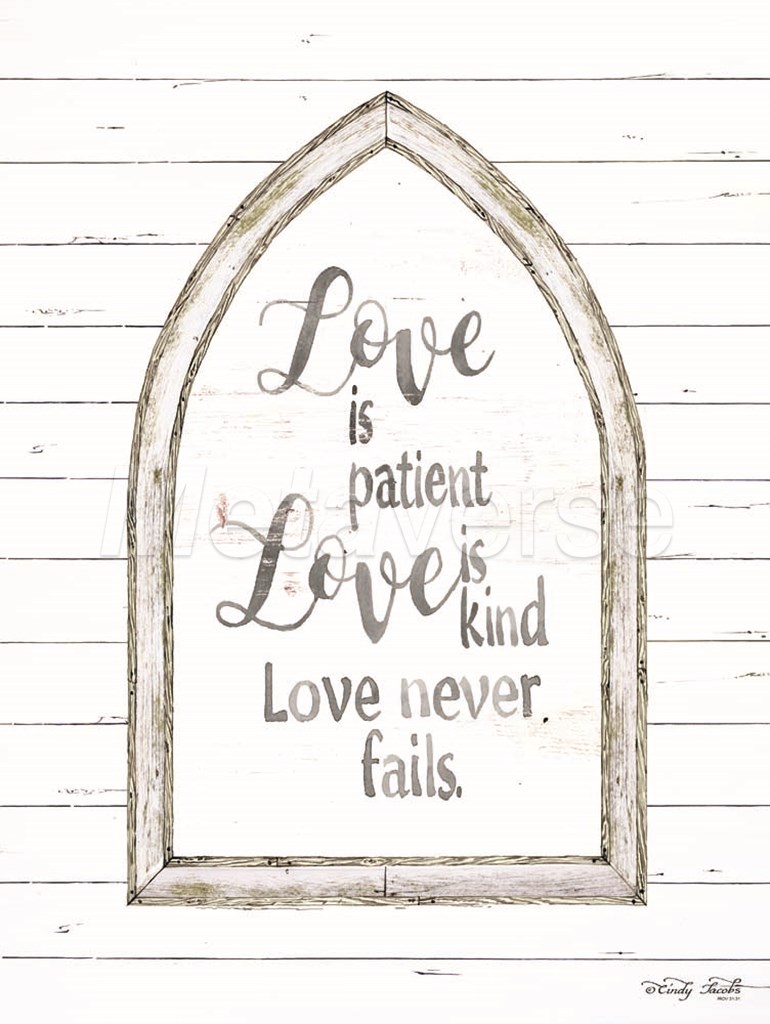 Love
is
patient
Love is
kind
Love never
fails.
Metaverse
©Cindy Jacobs
PROV 31:31